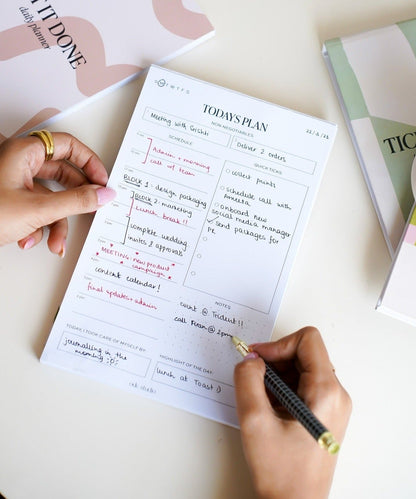 T IT DONE
daily planner
S M T W T F S
TODAYS PLAN
22/11/25
NON NEGOTIABLES
Meeting with Srishti
Deliver 2 orders
SCHEDULE
Admin + morning
call w/ team
BLOCK 1 - design packaging
BLOCK 2 - marketing
Lunch break!!
complete wedding
invites & approvals
MEETING: new product
campaign
content calendar!
final updates + admin
QUICK TICKS
collect prints
schedule call with
Ameeta
onboard new
social media manager
Send packages for
PR
NOTES
event @ Trident!!
call @
TODAY I TOOK CARE OF MYSELF BY:
journalling in the
morning :)
HIGHLIGHT OF THE DAY:
lunch at Toast :)
TIC